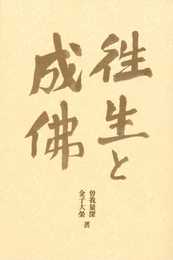 往生と
成佛
曽我量深
金子大榮 著